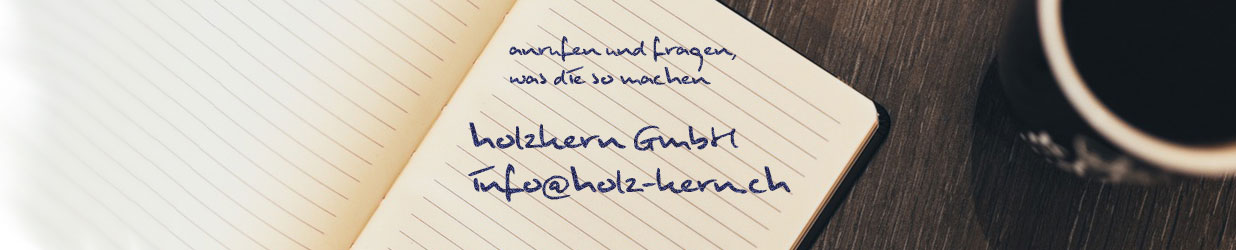 anrufen und fragen,
was die so machen
holzkern GmbH
info@holz-kern.ch